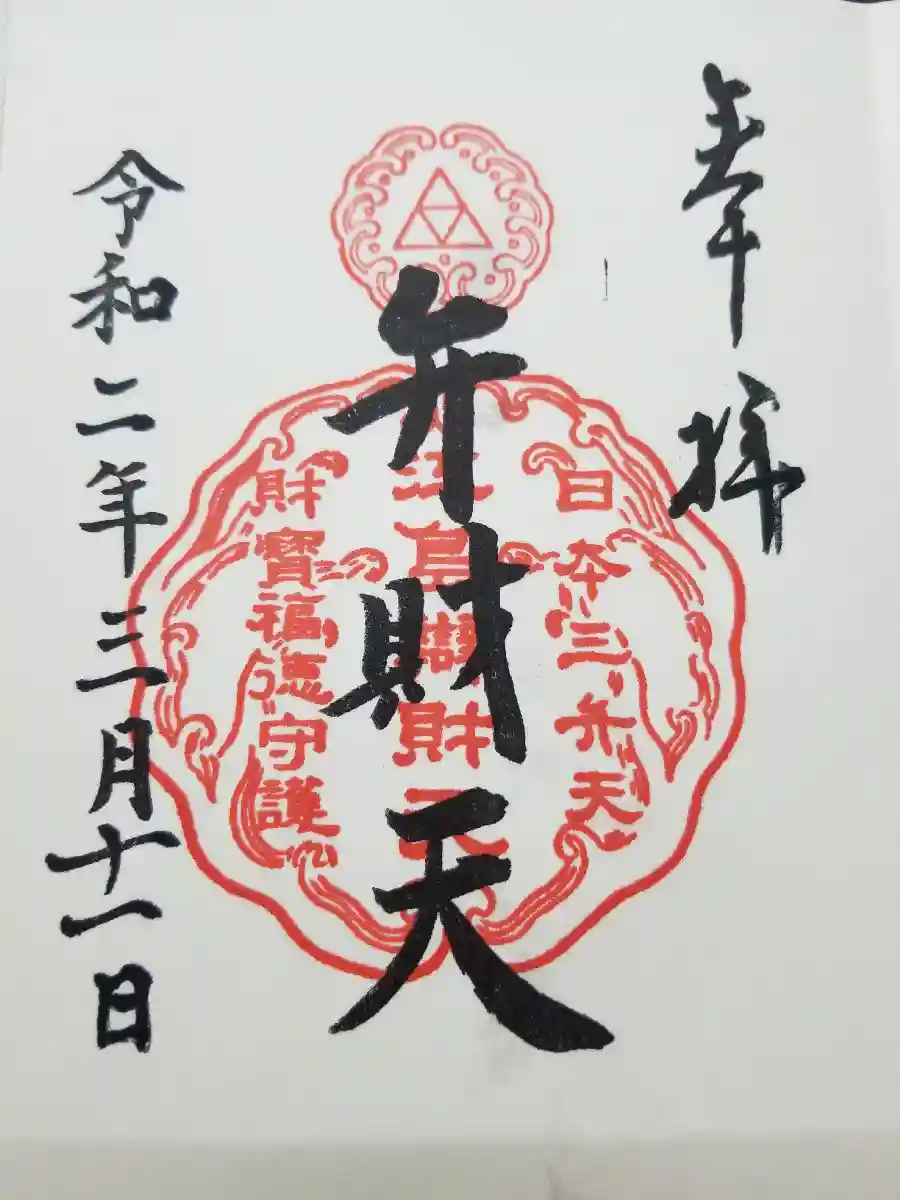 奉拝
日本三弁天
江島辯財天
財寶福徳守護
弁財天
令和二年三月十一日